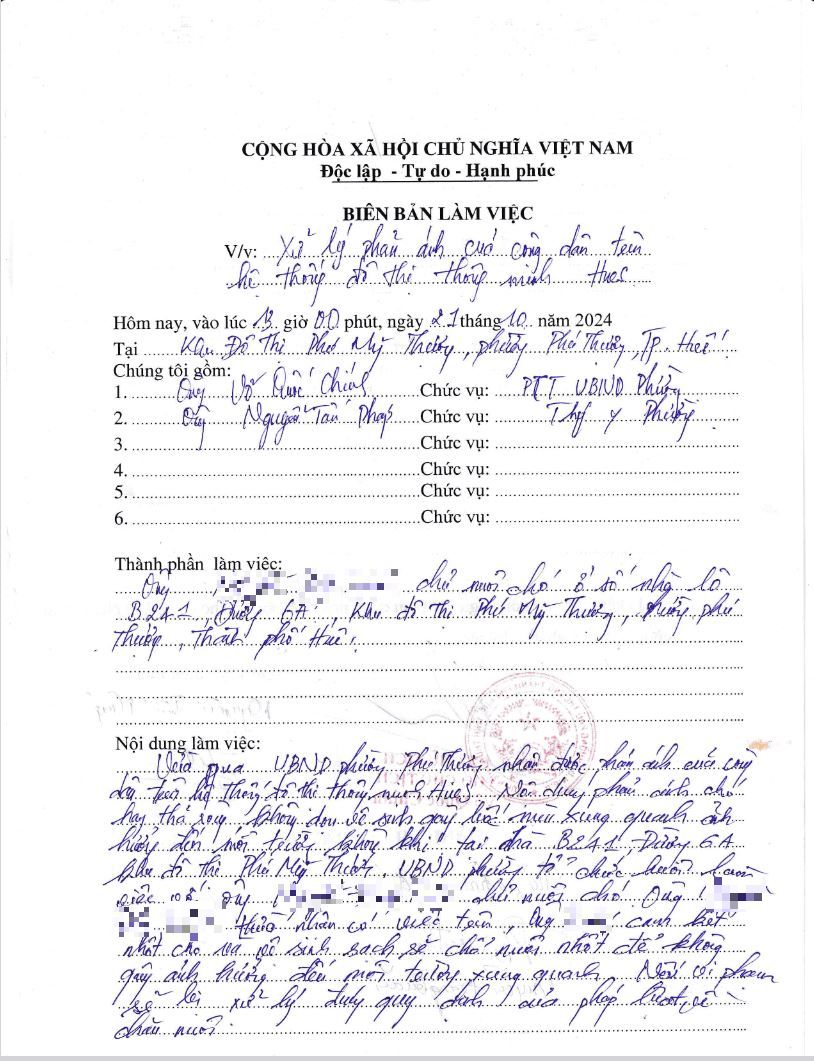 CỘNG HÒA XÃ HỘI CHỦ NGHĨA VIỆT NAM
Độc lập - Tự do - Hạnh phúc
BIÊN BẢN LÀM VIỆC
V/v: Xử lý phản ánh của công dân trên
hệ thống đô thị thông minh HueS
Hôm nay, vào lúc 13 giờ 00 phút, ngày 21 tháng 10 năm 2024
Tại Khu Đô Thị Phú Mỹ Thượng, phường Phú Thượng, Tp. Huế
Chúng tôi gồm:
1. Ông Võ Quốc Chính Chức vụ: PCT UBND Phường
2. Ông Nguyễn Tấn Chức vụ: Thú y Phường
3. Chức vụ:
4. Chức vụ:
5. Chức vụ:
6. Chức vụ:
Thành phần làm việc:
Ông chủ nuôi chó ở số nhà lô
B241, Đường 6A, Khu đô thị Phú Mỹ Thượng, Phường Phú
Thượng, Thành phố Huế.
Nội dung làm việc:
Vừa qua UBND phường Phú Thượng nhận được phản ánh của công
dân trên hệ thống đô thị thông minh HueS. Nội dung phản ánh chó
hay thả rong không dọn vệ sinh gây bốc mùi xung quanh ảnh
hưởng đến môi trường không khí tại nhà B241, Đường 6A
khu đô thị Phú Mỹ Thượng. UBND phường tổ chức
việc với ông chủ nuôi chó. Ông
thừa nhận có việc trên, Ông cam kết
nhốt chó và vệ sinh sạch sẽ chỗ nuôi nhốt để không
gây ảnh hưởng đến môi trường xung quanh. Nếu vi phạm
sẽ bị xử lý đúng quy định của pháp luật về
chăn nuôi.